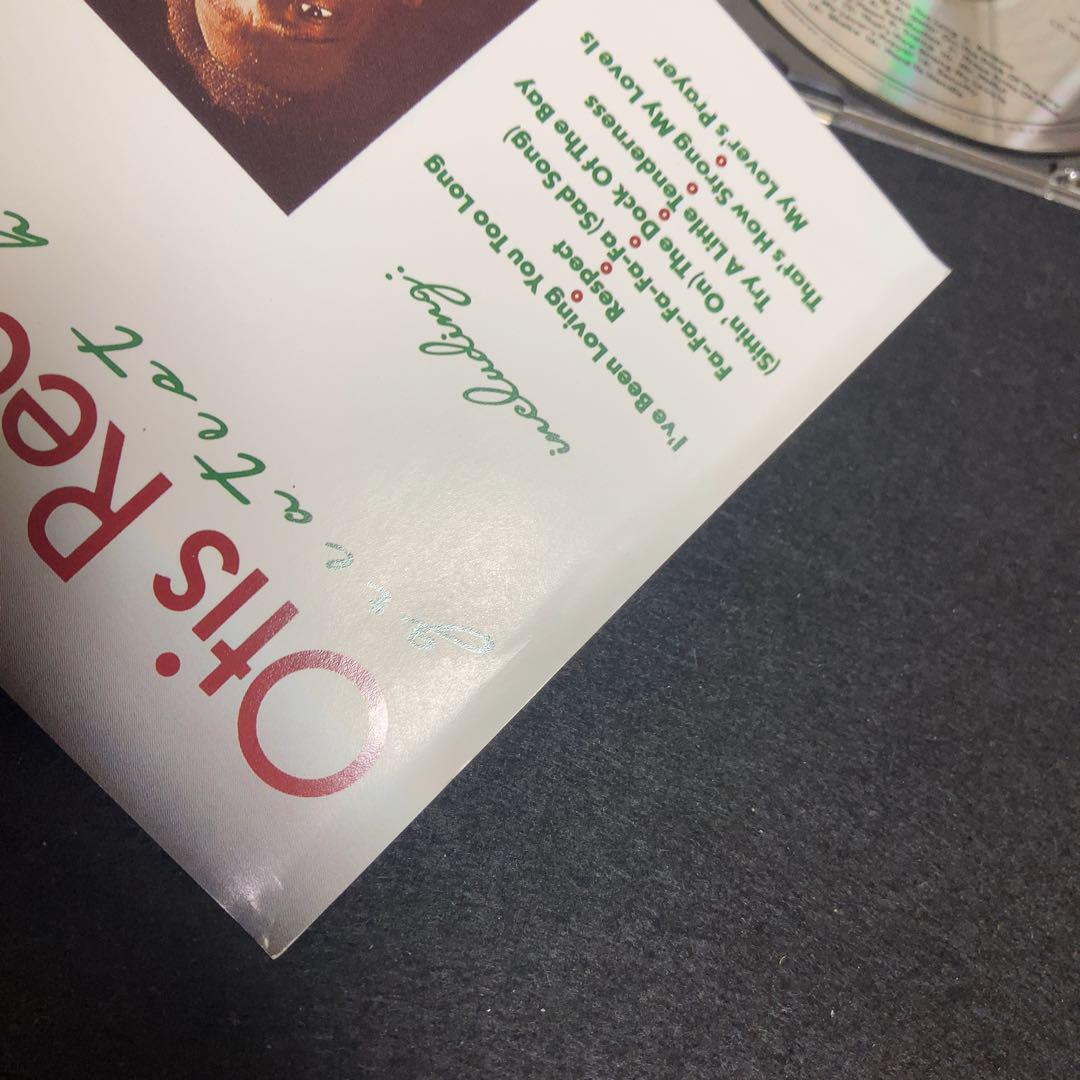 Otis Red
greatest h
including:
I've Been Loving You Too Long
Respect
Fa-Fa-Fa-Fa-Fa (Sad Song)
(Sittin' On) The Dock Of The Bay
Try A Little Tenderness
That's How Strong My Love Is
My Lover's Prayer